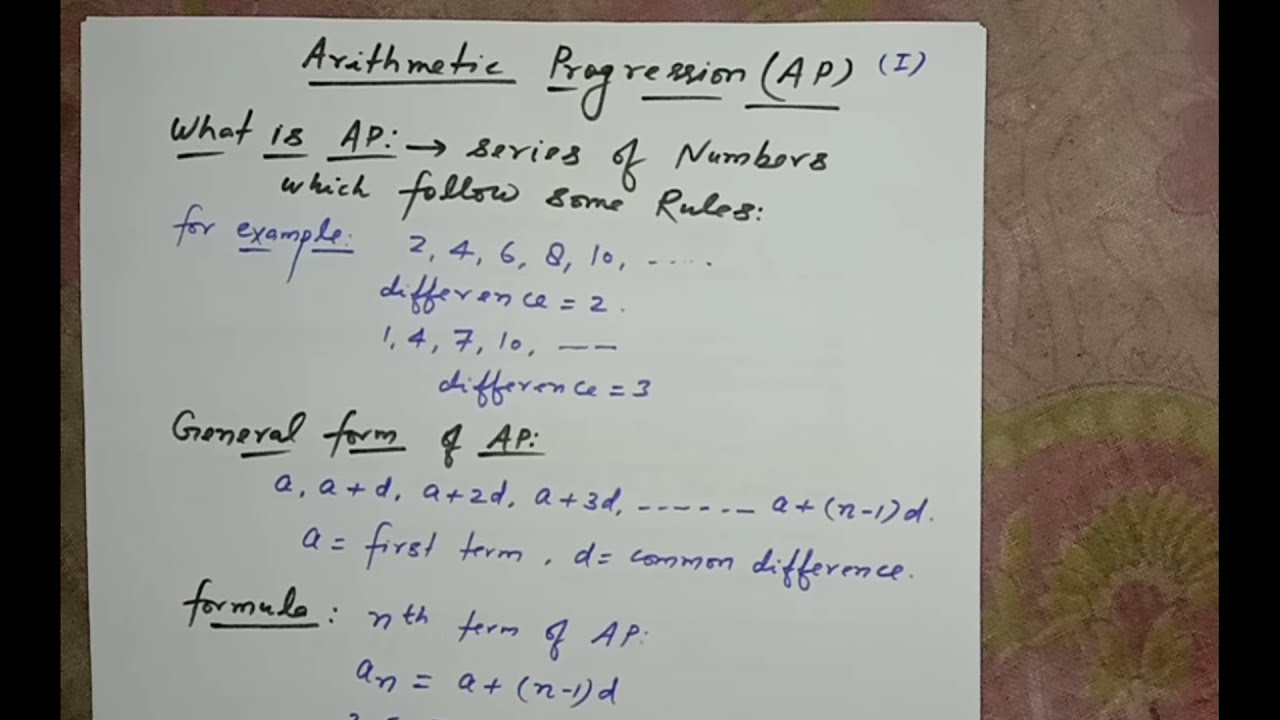 Arithmetic Progression (AP) (I)
What is AP: → series of Numbers
which follow some Rules:
for example: 2, 4, 6, 8, 10, .....
difference = 2.
1, 4, 7, 10, ——
difference = 3
General form of AP:
a, a+d, a+2d, a+3d, ------- a+(n-1)d.
a = first term, d = common difference.
formula: nth term of AP:
an = a+(n-1)d